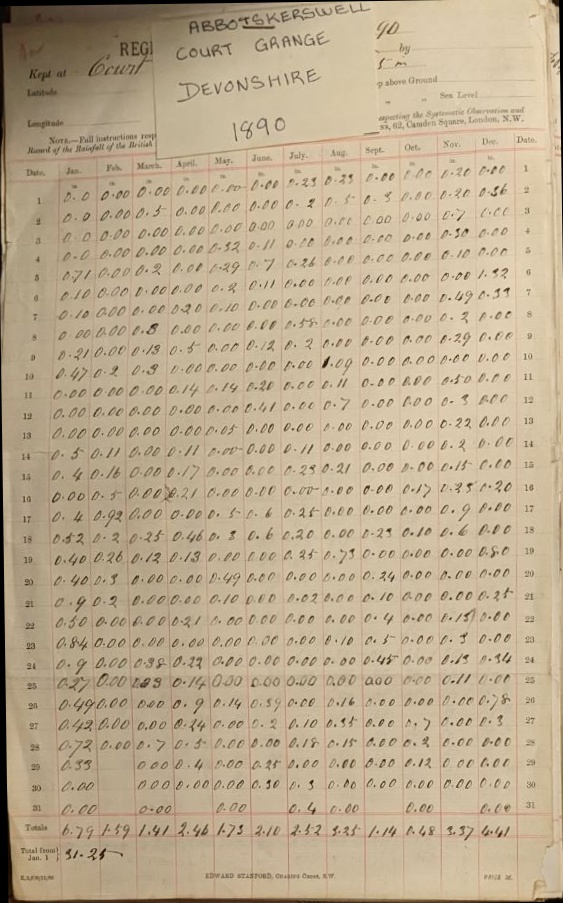 ABBOTSKERSWELL
COURT GRANGE
DEVONSHIRE
1890
REGI
90
Kept at Court
by
Latitude
above Ground
" " Sea Level
Longitude
NOTE.—Full instructions resp
especting the Systematic Observation and
Record of the Rainfall of the British
ss, 62, Camden Square, London, N.W.
Date. Jan. Feb. March. April. May. June. July. Aug. Sept. Oct. Nov. Dec. Date.
in. in. in. in. in. in. in. in. in. in. in. in.
1 0.0 0.00 0.00 0.00 0.00 0.00 0.23 0.23 0.00 0.00 0.20 0.00 1
2 0.0 0.00 0.5 0.00 0.00 0.00 0.2 0.5 0.3 0.00 0.20 0.36 2
3 0.0 0.00 0.00 0.00 0.00 0.00 0.00 0.00 0.00 0.00 0.7 0.00 3
4 0.0 0.00 0.00 0.00 0.32 0.11 0.00 0.00 0.00 0.00 0.30 0.00 4
5 0.71 0.00 0.2 0.00 0.29 0.7 0.26 0.00 0.00 0.00 0.10 0.00 5
6 0.10 0.00 0.00 0.00 0.2 0.11 0.00 0.00 0.00 0.00 0.00 1.32 6
7 0.10 0.00 0.00 0.20 0.10 0.00 0.00 0.00 0.00 0.00 0.49 0.33 7
8 0.00 0.00 0.3 0.00 0.00 0.00 0.58 0.00 0.00 0.00 0.2 0.00 8
9 0.21 0.00 0.13 0.5 0.00 0.12 0.2 0.00 0.00 0.00 0.29 0.00 9
10 0.47 0.2 0.3 0.00 0.00 0.00 0.00 1.09 0.00 0.00 0.00 0.00 10
11 0.00 0.00 0.00 0.14 0.14 0.20 0.00 0.11 0.00 0.00 0.50 0.00 11
12 0.00 0.00 0.00 0.00 0.00 0.41 0.00 0.7 0.00 0.00 0.3 0.00 12
13 0.00 0.00 0.00 0.00 0.05 0.00 0.00 0.00 0.00 0.00 0.22 0.00 13
14 0.5 0.11 0.00 0.11 0.00 0.00 0.11 0.00 0.00 0.00 0.2 0.00 14
15 0.4 0.16 0.00 0.17 0.00 0.00 0.23 0.21 0.00 0.00 0.15 0.00 15
16 0.00 0.5 0.00 0.21 0.00 0.00 0.00 0.00 0.00 0.17 0.23 0.20 16
17 0.4 0.92 0.00 0.00 0.5 0.6 0.25 0.00 0.00 0.00 0.9 0.00 17
18 0.52 0.2 0.25 0.46 0.3 0.6 0.20 0.00 0.23 0.10 0.6 0.00 18
19 0.40 0.26 0.12 0.13 0.00 0.00 0.25 0.73 0.00 0.00 0.00 0.80 19
20 0.40 0.3 0.00 0.00 0.49 0.00 0.00 0.00 0.24 0.00 0.00 0.00 20
21 0.9 0.2 0.00 0.00 0.10 0.00 0.02 0.00 0.10 0.00 0.00 0.25 21
22 0.50 0.00 0.00 0.21 0.00 0.00 0.00 0.00 0.4 0.00 0.15 0.00 22
23 0.84 0.00 0.00 0.00 0.00 0.00 0.00 0.10 0.5 0.00 0.3 0.00 23
24 0.9 0.00 0.38 0.22 0.00 0.00 0.00 0.00 0.45 0.00 0.13 0.34 24
25 0.27 0.00 0.14 0.00 0.00 0.00 0.00 0.00 0.00 0.11 0.00 25
26 0.49 0.00 0.00 0.9 0.14 0.39 0.00 0.16 0.00 0.00 0.00 0.78 26
27 0.42 0.00 0.00 0.24 0.00 0.2 0.10 0.35 0.00 0.7 0.00 0.3 27
28 0.72 0.00 0.7 0.5 0.00 0.00 0.18 0.15 0.00 0.2 0.00 0.00 28
29 0.33 0.00 0.4 0.00 0.25 0.00 0.00 0.00 0.12 0.00 0.00 29
30 0.00 0.00 0.00 0.00 0.30 0.3 0.00 0.00 0.00 0.00 0.00 30
31 0.00 0.00 0.00 0.4 0.00 0.00 0.00 31
Totals 6.79 1.59 1.41 2.46 1.73 2.10 2.52 3.25 1.14 0.48 3.37 4.41
Total from Jan. 1 } 31.25
EDWARD STANFORD, Charing Cross, S.W.